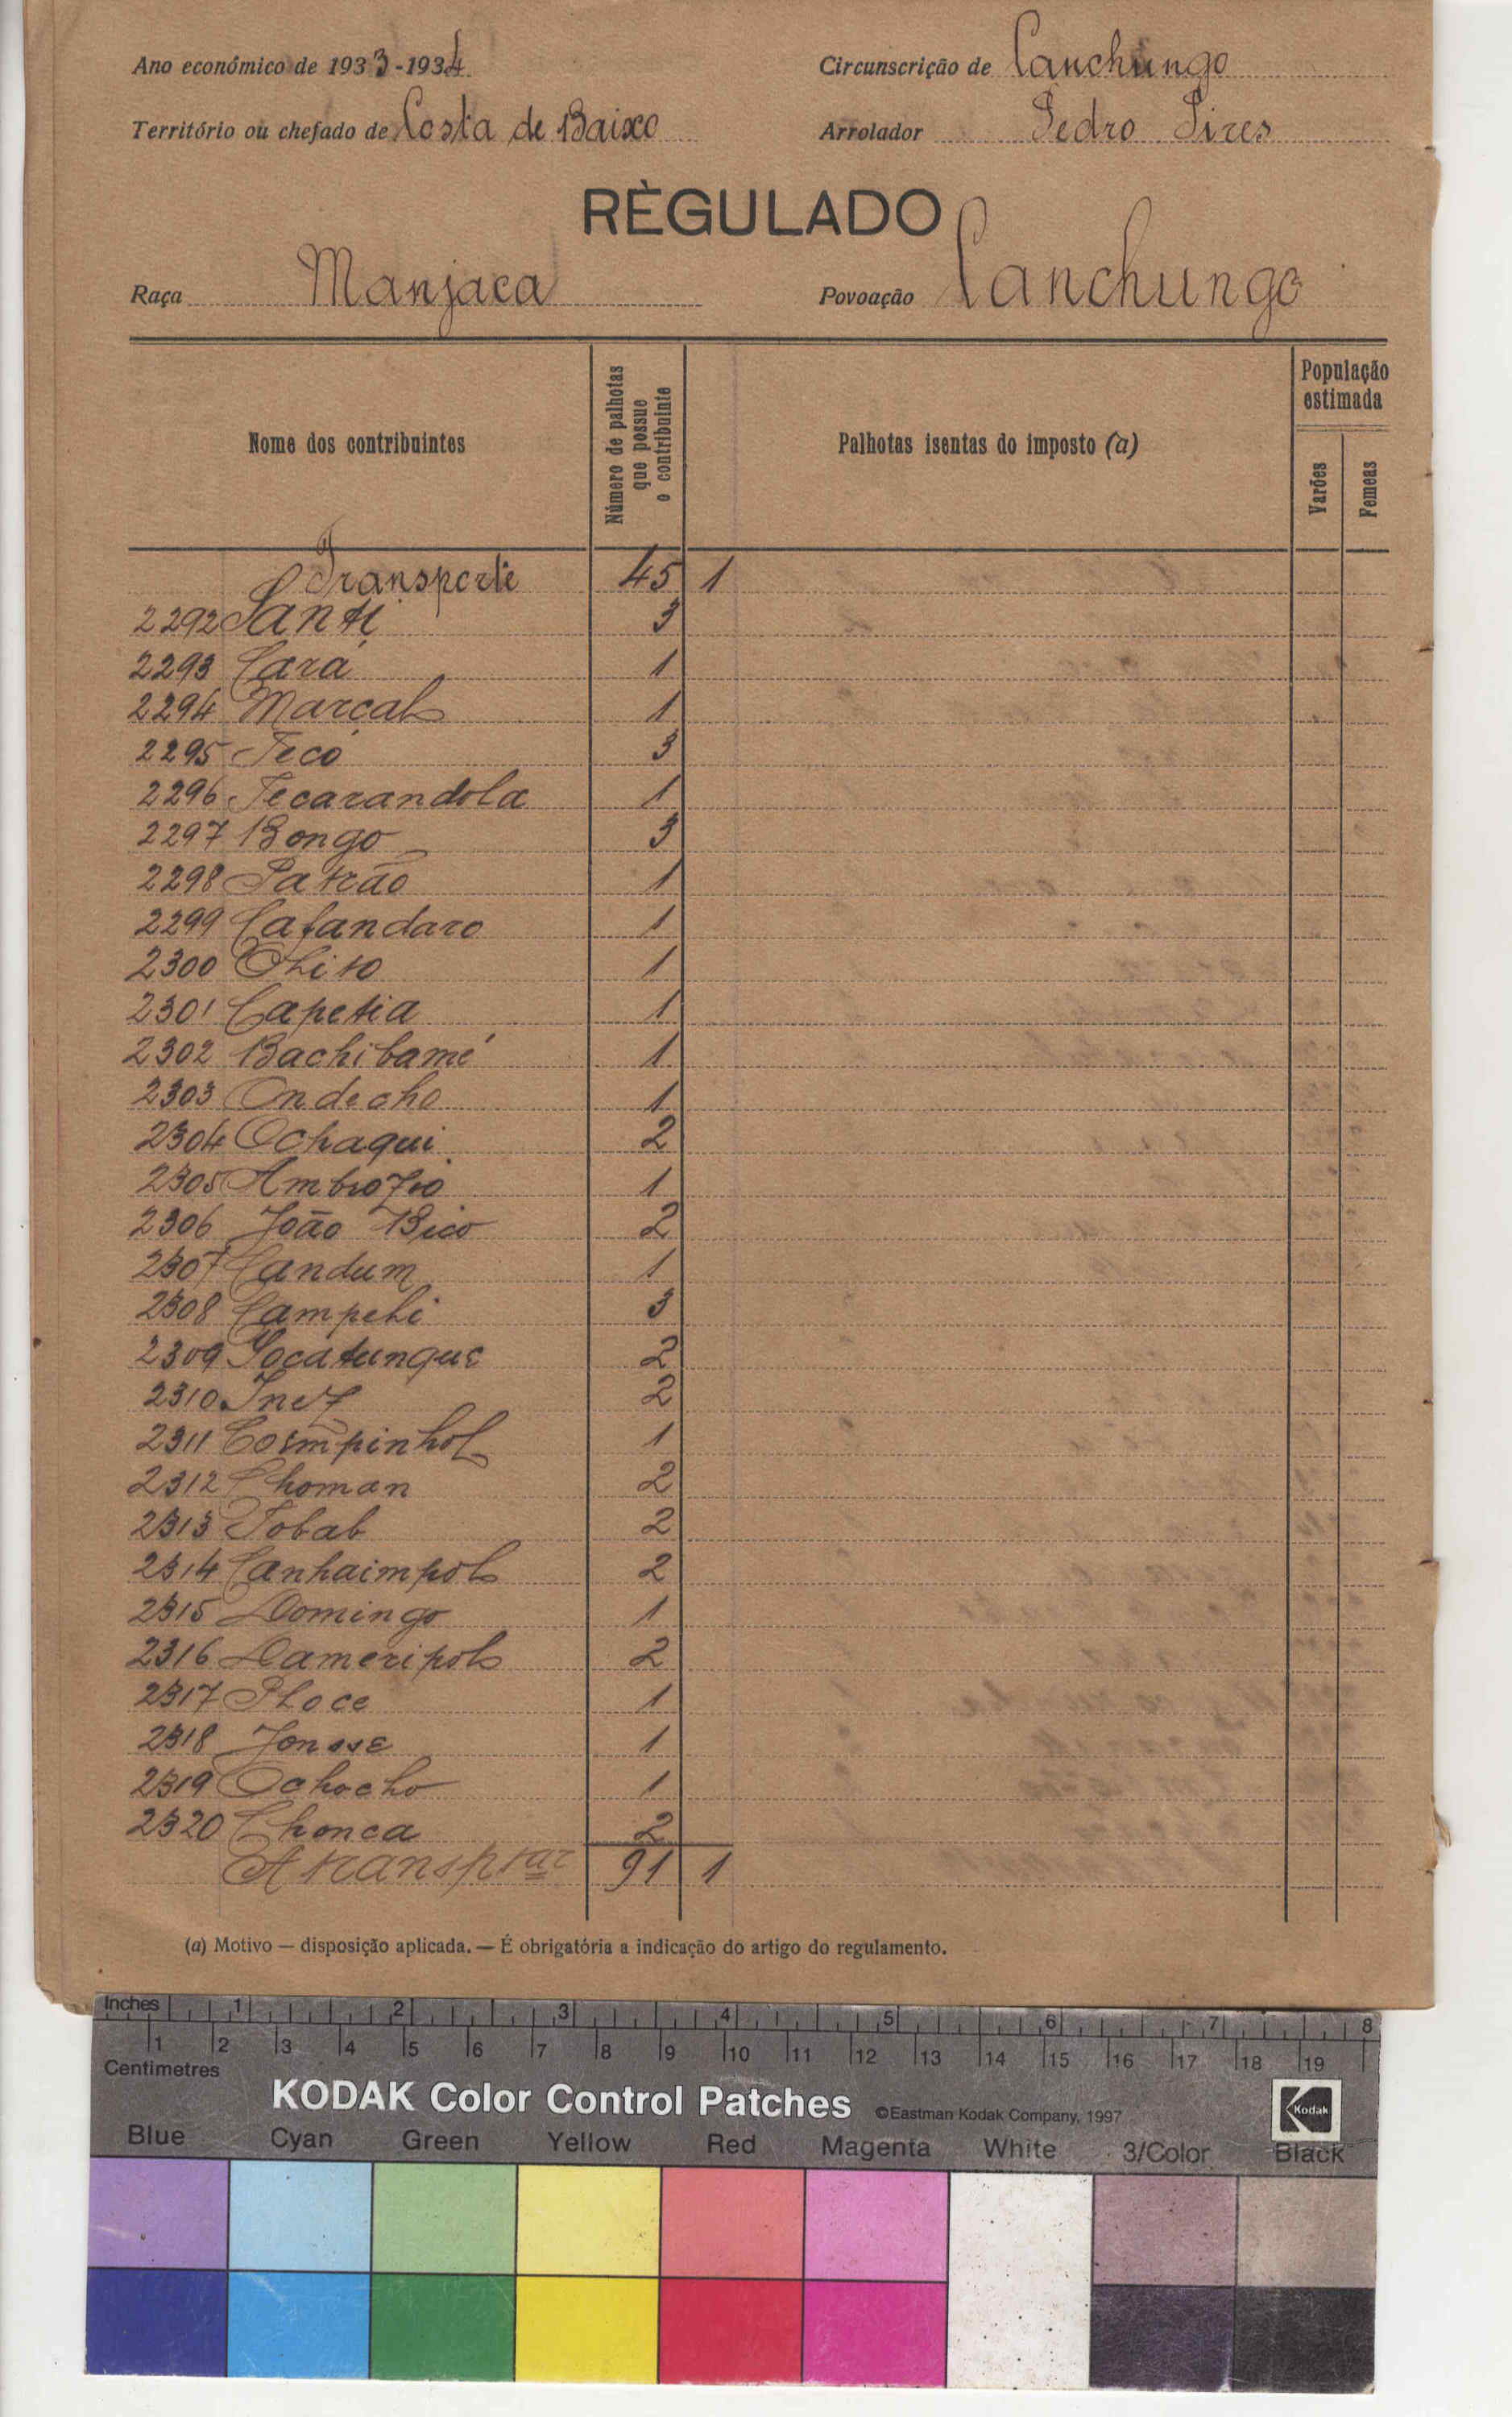 Ano económico de 1933-1934 Circunscrição de Canchungo
Território ou chefado de Costa de Baixo Arrolador Pedro Pires
RÈGULADO
Raça Manjaca Povoação Canchungo
Nome dos contribuintes Número de palhotas que possue o contribuinte Palhotas isentas do imposto (a) População estimada Varões Femeas
Transporte 45 1
2292 Santi 3
2293 Cará 1
2294 Marcal 1
2295 Tecó 3
2296 Tecarandola 1
2297 Bongo 3
2298 Patrão 1
2299 Cafandaro 1
2300 1
2301 Capetia 1
2302 Bachibamé 1
2303 Ondecho 1
2304 Ochaqui 2
2305 Ambrozio 1
2306 João Bico 2
2307 Candum 1
2308 Campehi 3
2309 2
2310 Inez 2
2311 1
2312 Choman 2
2313 Tobab 2
2314 Canhaimpol 2
2315 Domingo 1
2316 Dameripol 2
2317 Ploce 1
2318 Jonsse 1
2319 Ochocho 1
2320 Chonca 2
A transptar 91 1
(a) Motivo — disposição aplicada. — É obrigatória a indicação do artigo do regulamento.
Inches 1 2 3 4 5 6 7 8
1 2 3 4 5 6 7 8 9 10 11 12 13 14 15 16 17 18 19
Centimetres
KODAK Color Control Patches ©Eastman Kodak Company, 1997 Kodak
Blue Cyan Green Yellow Red Magenta White 3/Color Black